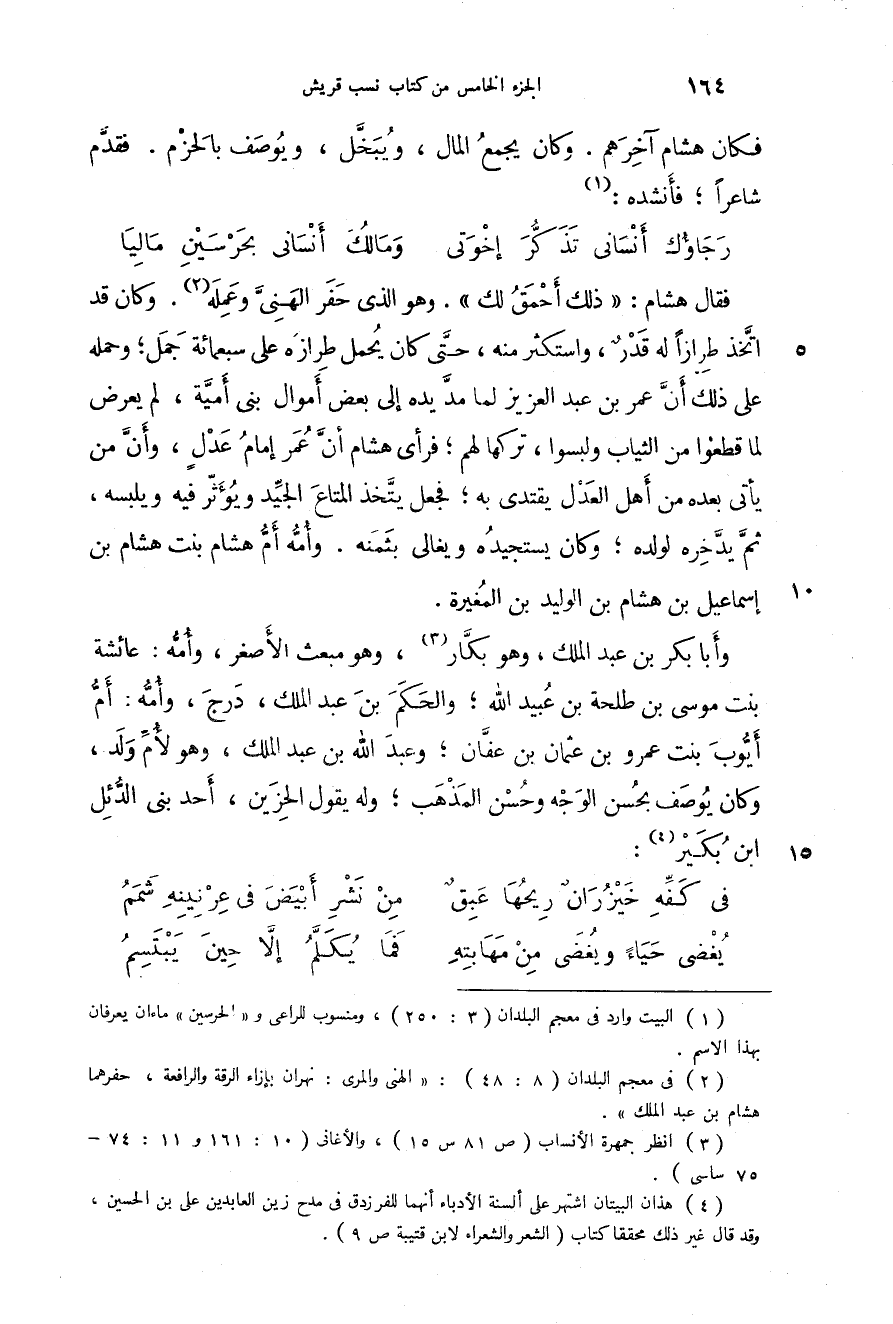 ١٦٤ الجزء الخامس من كتاب نسب قريش
فكان هشام آخِرَهم . وكان يجمعُ المال ، ويُبَخَّل ، ويُوصَف بالحَزْم . فقدَّم
شاعراً ؛ فأَنشده :(١)
رَجَاؤُك أَنْسَانى تَذَكُّرَ إخْوَتى وَمَالُكَ أَنْسَانى بحَرْسَيْنِ مَالِيَا
فقال هشام : « ذلك أَحْمَقُ لك » . وهو الذى حَفَر الهَنِىَّ وعَمِلَه(٢) . وكان قد
اتَّخذ طِرازاً له قَدْرٌ ، واستكثر منه ، حتَّى كان يُحمل طِرازَه على سبعمائة جَمَل ؛ وحمله
على ذلك أَنَّ عمر بن عبد العزيز لما مدَّ يده إلى بعض أَموال بنى أُميَّة ، لم يعرض
لما قطعْوا من الثياب ولبسوا ، تركها لهم ؛ فرأى هشام أنَّ عُمَر إمامُ عَدْلٍ ، وأَنَّ من
يأتى بعده من أَهل العَدْل يقتدى به ؛ فجعل يتَّخذ المتاعَ الجيِّد ويُؤثّر فيه ويلبسه ،
ثمَّ يدَّخِره لولده ؛ وكان يستجيدُه ويغالى بثَمَنه . وأُمُّه أمُّ هشام بنت هشام بن
إسماعيل بن هشام بن الوليد بن المُغيرة .
وأَبا بكر بن عبد الملك ، وهو بكَّار(٣) ، وهو مبعث الأَصغر ، وأُمُّه : عائشة
بنت موسى بن طلحة بن عُبيد الله ؛ والحَكَمَ بنَ عبد الملك ، دَرجَ ، وأُمُّه : أمُّ
أَيُّوبَ بنت عمرو بن عثمان بن عفَّان ؛ وعبدَ الله بن عبد الملك ، وهو لأُمِّ وَلَد ،
وكان يُوصَف بحُسن الوَجْه وحُسْن المَذْهَب ؛ وله يقول الحَزِين ، أَحد بنى الدُّئِل
ابن بُكَيْر(٤) :
فى كَفِّهِ خَيْزُرَانٌ رِيحُهَا عَبِقٌ مِنْ نَشْرِ أَبْيَضَ فى عِرْنِينِهِ شَمَمُ
يُغْضى حَيَاءً ويُغْضَى مِنْ مَهَابتِهِ فَمَا يُكَلَّمُ إلَّا حِينَ يَبْتَسِمُ
( ١ ) البيت وارد فى معجم البلدان ( ٣ : ٢٥٠ ) ، ومنسوب للراعى و « الحرسين » ماءان يعرفان
بهذا الاسم .
( ٢ ) فى معجم البلدان ( ٨ : ٤٨ ) : « الهنى والمرى : نهران بإزاء الرقة والرافعة ، حفرهما
هشام بن عبد الملك » .
( ٣ ) انظر جمهرة الأنساب ( ص ٨١ س ١٥ ) ، والأغانى ( ١٠ : ١٦١ و ١١ : ٧٤ –
٧٥ ساسى ) .
( ٤ ) هذان البيتان اشتهر على ألسنة الأدباء أنهما للفرزدق فى مدح زين العابدين على بن الحسين ،
وقد قال غير ذلك محققا كتاب ( الشعر والشعراء لابن قتيبة ص ٩ ) .
٥
١٠
١٥